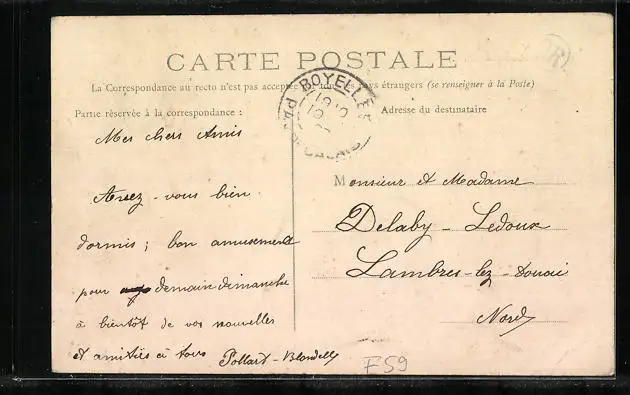 CARTE POSTALE
La Correspondance au recto n'est pas acceptée par tous les pays étrangers (se renseigner à la Poste)
Partie réservée à la correspondance :
Adresse du destinataire
BOYELLES
PAS-DE-CALAIS
Mes chers Amis
Avez-vous bien
dormis ; bon amusement
pour demain dimanche
à bientôt de vos nouvelles
et amitiés à tous
Pollart-Blondelle
Monsieur et Madame
Delaby-Ledoux
Lambres-lez-Douai
Nord
F59